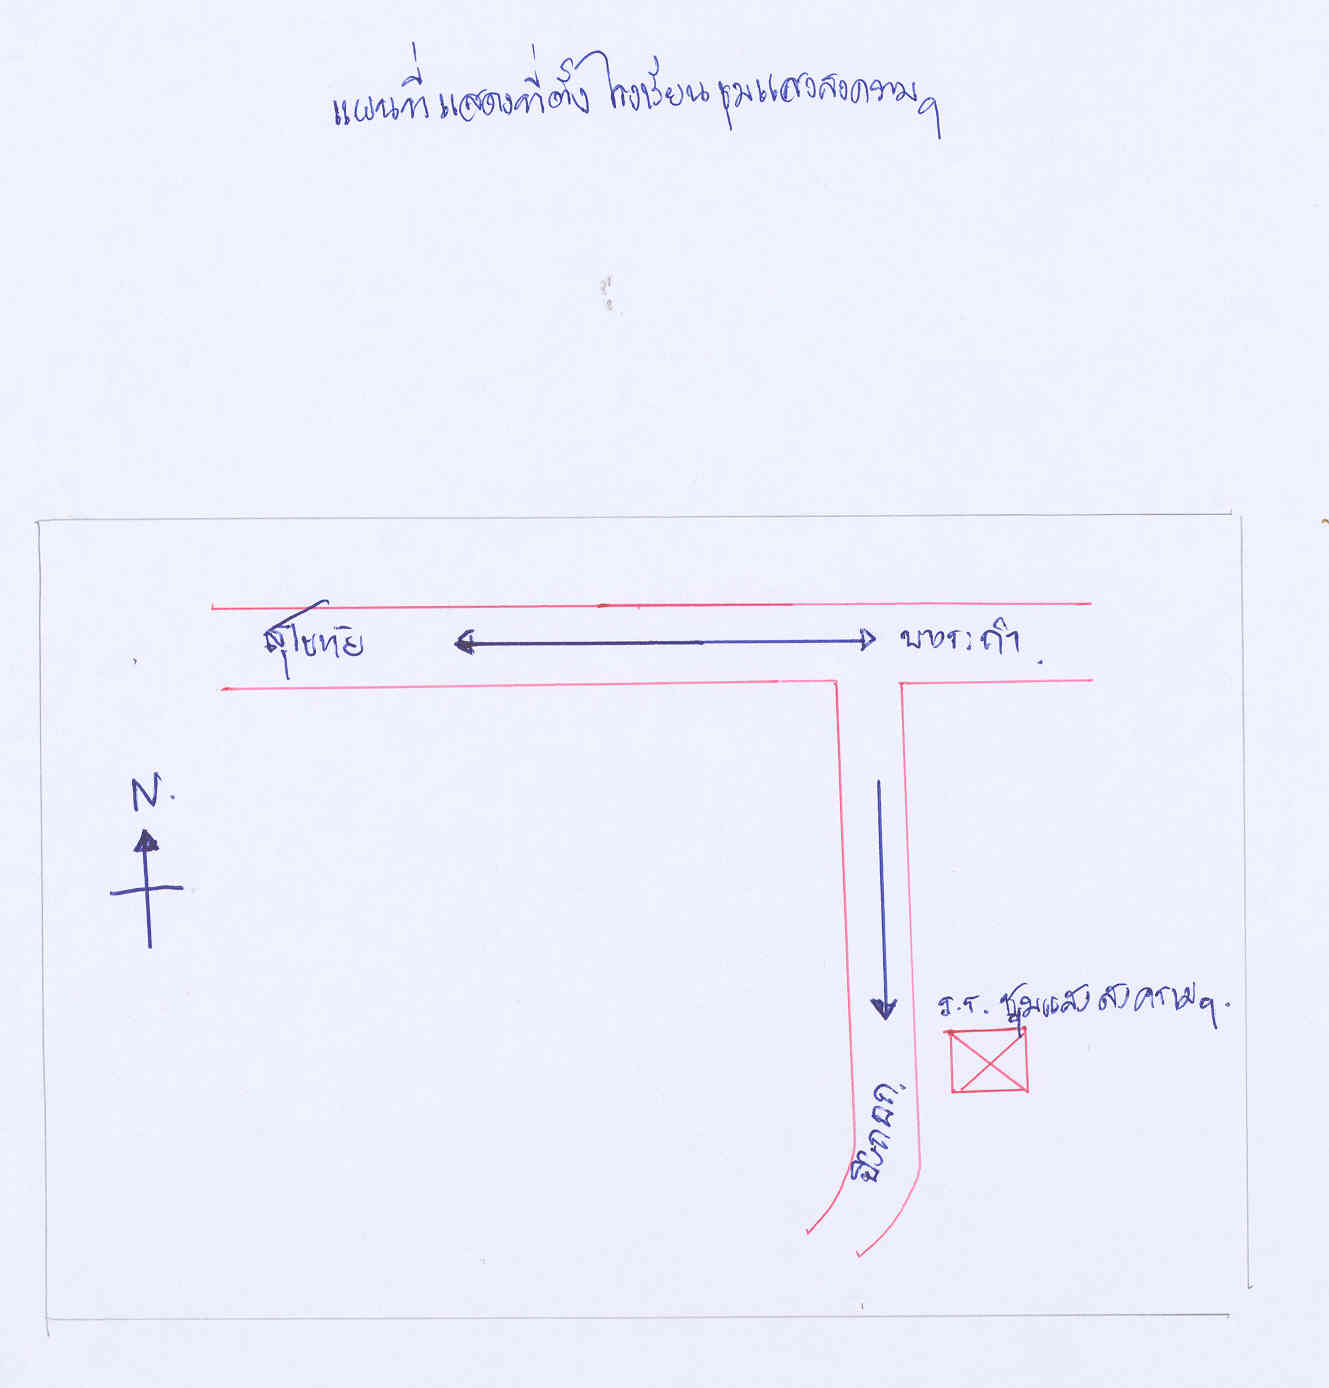 แผนที่แสดงที่ตั้งโรงเรียนชุมแสงสงครามฯ
สุโขทัย
บางระกำ
N.
ร.ร. ชุมแสงสงครามฯ